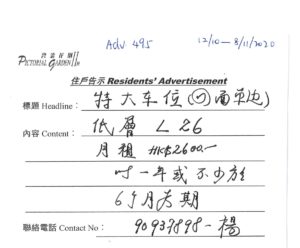 Adv 495
12/10 — 8/11/2020
欣景花園
PICTORIAL GARDEN II
住戶告示 Residents' Advertisement
標題 Headline: 特大車位
內容 Content: 低層 L26
月租 HK$2600.—
一年或不少於
6個月為期
聯絡電話 Contact No: 90939898 - 楊